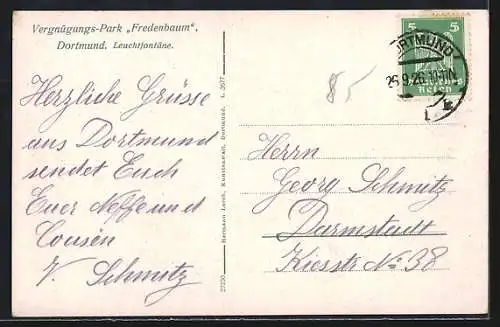 Vergnügungs-Park „Fredenbaum“,
Dortmund. Leuchtfontäne.
Herzliche Grüsse
aus Dortmund
sendet Euch
Euer Neffe und
Cousin
V. Schmitz
Hermann Lorch, Kunstanstalt, Dortmund. L. 2677
27220
5 5
DORTMUND
25.9.26.
85
Herrn
Georg Schmitz
Darmstadt
Kiesstr No 38